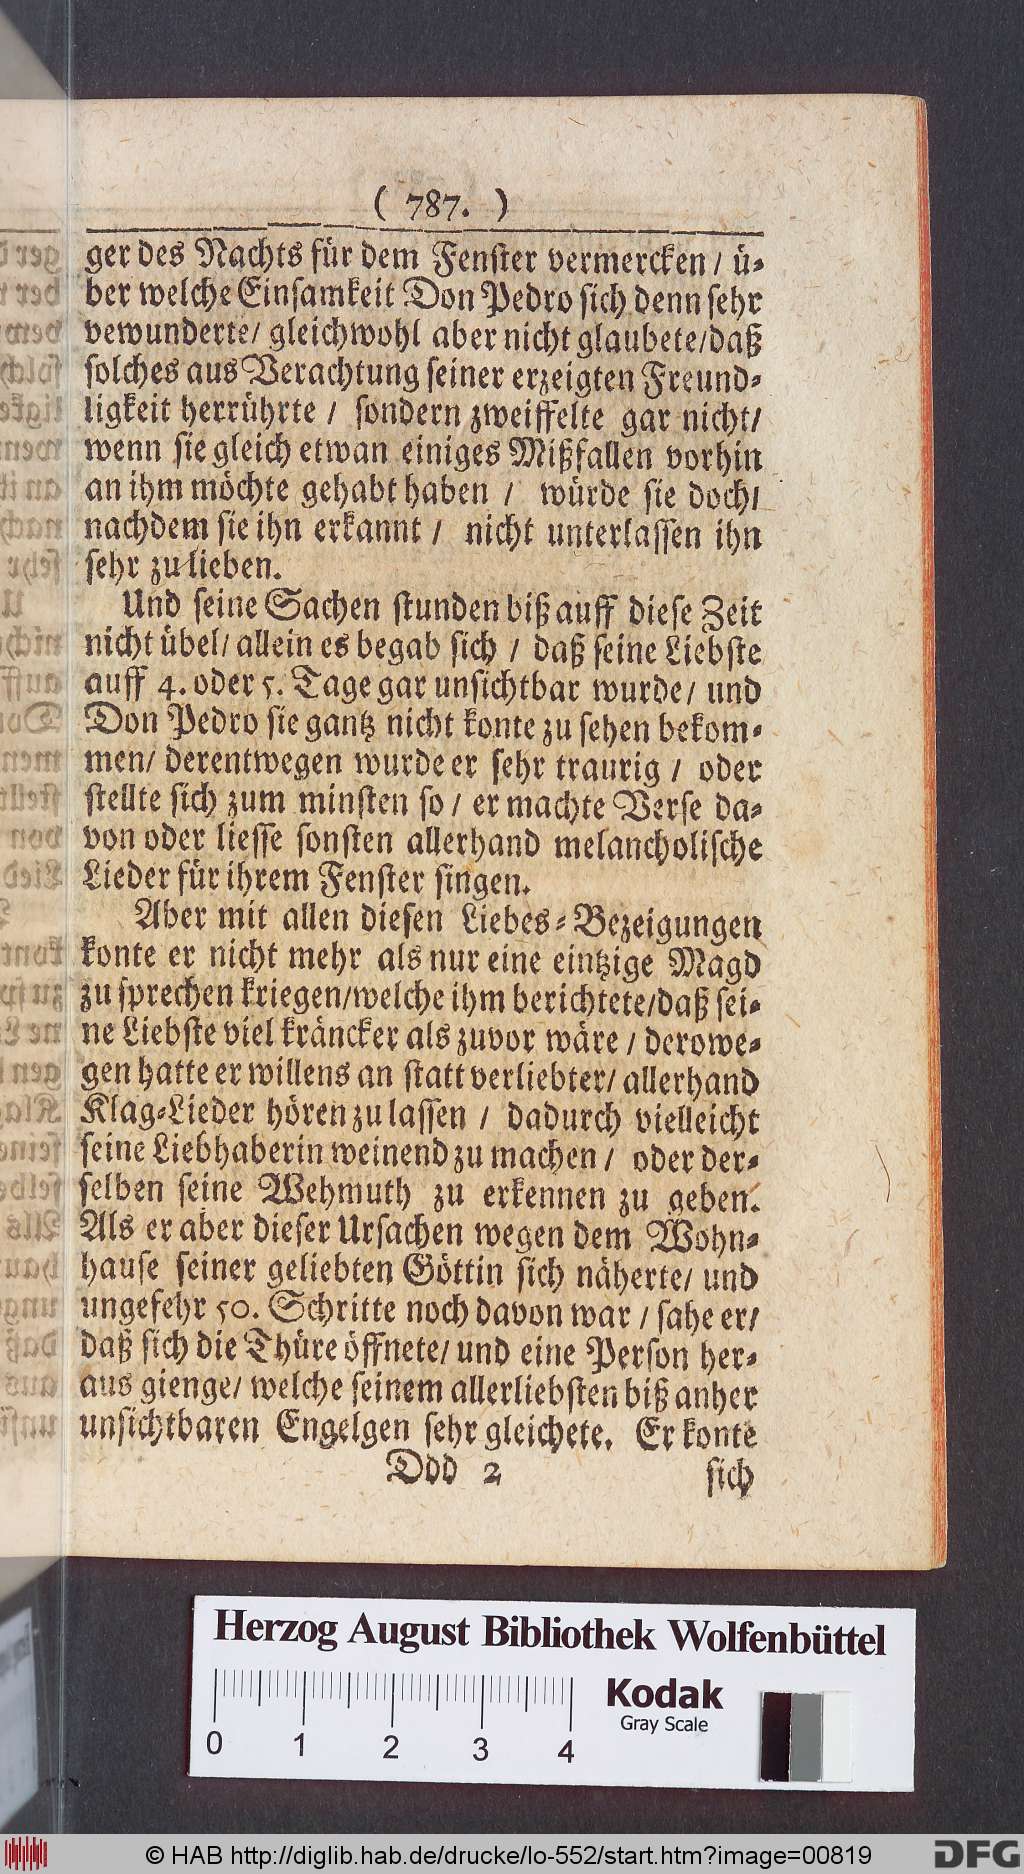 ( 787. )
ger des Nachts für dem Fenster vermercken / ü-
ber welche Einsamkeit Don Pedro sich denn sehr
vewunderte/ gleichwohl aber nicht glaubete/daß
solches aus Verachtung seiner erzeigten Freund-
ligkeit herrührte / sondern zweiffelte gar nicht/
wenn sie gleich etwan einiges Mißfallen vorhin
an ihm möchte gehabt haben / würde sie doch/
nachdem sie ihn erkannt / nicht unterlassen ihn
sehr zu lieben.
Und seine Sachen stunden biß auff diese Zeit
nicht übel/ allein es begab sich / daß seine Liebste
auff 4. oder 5. Tage gar unsichtbar wurde/ und
Don Pedro sie gantz nicht konte zu sehen bekom-
men/ derentwegen wurde er sehr traurig / oder
stellte sich zum minsten so / er machte Verse da-
von oder liesse sonsten allerhand melancholische
Lieder für ihrem Fenster singen.
Aber mit allen diesen Liebes-Bezeigungen
konte er nicht mehr als nur eine eintzige Magd
zu sprechen kriegen/welche ihm berichtete/daß sei-
ne Liebste viel kräncker als zuvor wäre / derowe-
gen hatte er willens an statt verliebter/ allerhand
Klag-Lieder hören zu lassen / dadurch vielleicht
seine Liebhaberin weinend zu machen / oder der-
selben seine Wehmuth zu erkennen zu geben.
Als er aber dieser Ursachen wegen dem Wohn-
hause seiner geliebten Göttin sich näherte/ und
ungefehr 50. Schritte noch davon war / sahe er/
daß sich die Thüre öffnete/ und eine Person her-
aus gienge/ welche seinem allerliebsten biß anher
unsichtbaren Engelgen sehr gleichete. Er konte
Ddd 2 sich
Herzog August Bibliothek Wolfenbüttel
0 1 2 3 4
Kodak
Gray Scale
© HAB http://diglib.hab.de/drucke/lo-552/start.htm?image=00819
DFG